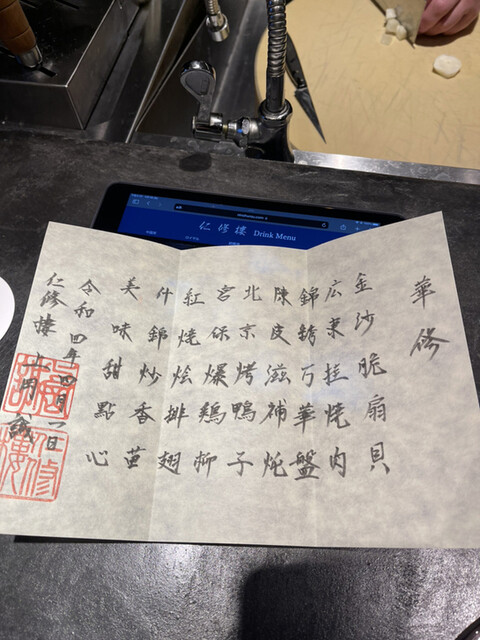 仁修樓 Drink Menu
華修
金沙脆扇貝
広東挂焼肉
錦繍万華盤
陳皮滋補炖
北京烤鴨子
宮保爆鶏柳
紅焼烩排翅
什錦炒香茴
美味甜點心
令和四年四月一日
仁修樓 上岡誠